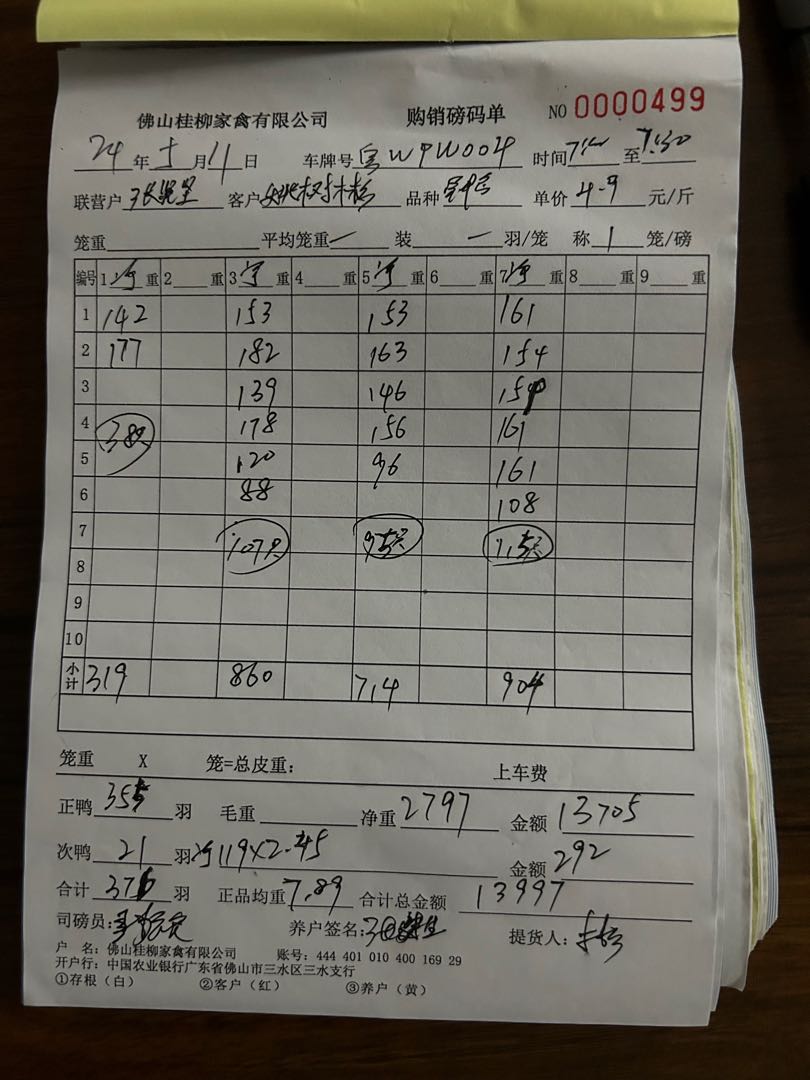 佛山桂柳家禽有限公司 购销磅码单 NO 0000499
24 年 5 月 11 日 车牌号 WPW004 时间 至 7:30
联营户 客户 姚树林 品种 单价 4.9 元/斤
笼重 平均笼重 一 装 一 羽/笼 称 1 笼/磅
编号 1 净 重 2 重 3 净 重 4 重 5 净 重 6 重 7 净 重 8 重 9 重
1 142 153 153 161
2 177 182 163 154
3 139 146 150
4 38只 178 156 161
5 120 96 161
6 88 108
7 107只 95只 115只
8
9
10
小计 319 860 714 904
笼重 X 笼=总皮重: 上车费
正鸭 355 羽 毛重 净重 2797 金额 13705
次鸭 21 羽 净119×2.45 金额 292
合计 376 羽 正品均重 7.89 合计总金额 13997
司磅员: 养户签名: 提货人:
户 名: 佛山桂柳家禽有限公司 账号: 444 401 010 400 169 29
开户行: 中国农业银行广东省佛山市三水区三水支行
①存根(白) ②客户(红) ③养户(黄)